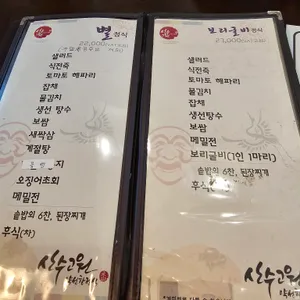 별정식
샐러드
식전죽
토마토 해파리
잡채
물김치
생선 탕수
보쌈
새싹삼
계절탕
오징어초회
메밀전
솥밥외 6찬, 된장찌개
후식(차)
산수고원
보리굴비정식
샐러드
식전죽
토마토 해파리
잡채
물김치
생선탕수
보쌈
메밀전
보리굴비(1인 1마리)
솥밥외 6찬, 된장찌개
후식(차)
산수고원